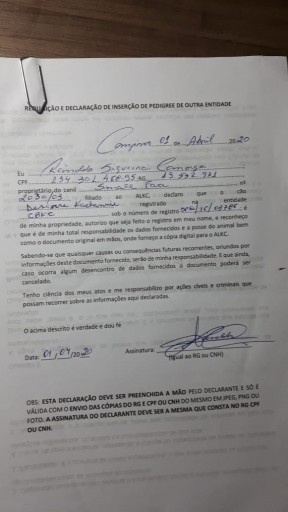 REQUISIÇÃO E DECLARAÇÃO DE INSERÇÃO DE PEDIGREE DE OUTRA ENTIDADE
Campinas 01 de Abril 2020
Eu
CPF RG
proprietário do canil nº
2030/03 filiado ao ALKC, declaro que o cão
registrado na entidade
CBKC sob o número de registro é
de minha propriedade, autorizo que seja feito o registro em meu nome, e reconheço
que é de minha total responsabilidade os dados fornecidos e a posse do animal bem
como o documento original em mãos, onde forneço a cópia digital para o ALKC.
Sabendo-se que quaisquer causas ou consequências futuras recorrentes, oriundos por
informações deste documento fornecido, serão de minha responsabilidade. E que ainda,
caso ocorra algum desencontro de dados fornecidos o documento poderá ser
cancelado.
Tenho ciência dos meus atos e me responsabilizo por ações cíveis e criminais que
possam recorrer sobre as informações aqui declaradas.
O acima descrito é verdade e dou fé
Data: 01/04/2020 Assinatura:
(Igual ao RG ou CNH)
OBS: ESTA DECLARAÇÃO DEVE SER PREENCHIDA A MÃO PELO DECLARANTE E SÓ É
VÁLIDA COM O ENVIO DAS CÓPIAS DO RG E CPF OU CNH DO MESMO EM JPEG, PNG OU
FOTO. A ASSINATURA DO DECLARANTE DEVE SER A MESMA QUE CONSTA NO RG CPF
OU CNH.